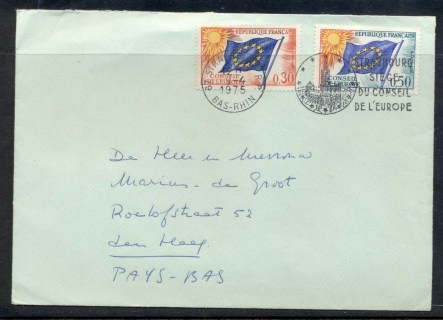 RÉPUBLIQUE FRANÇAISE
CONSEIL
0,30
1975
BAS-RHIN
RÉPUBLIQUE FRANÇAISE
CONSEIL
0,50
STRASBOURG
SIEGE
DU CONSEIL
DE L'EUROPE
De Heer en Mevrouw
Marius - de Groot
Roelofstraat 52
den Haag
PAYS-BAS